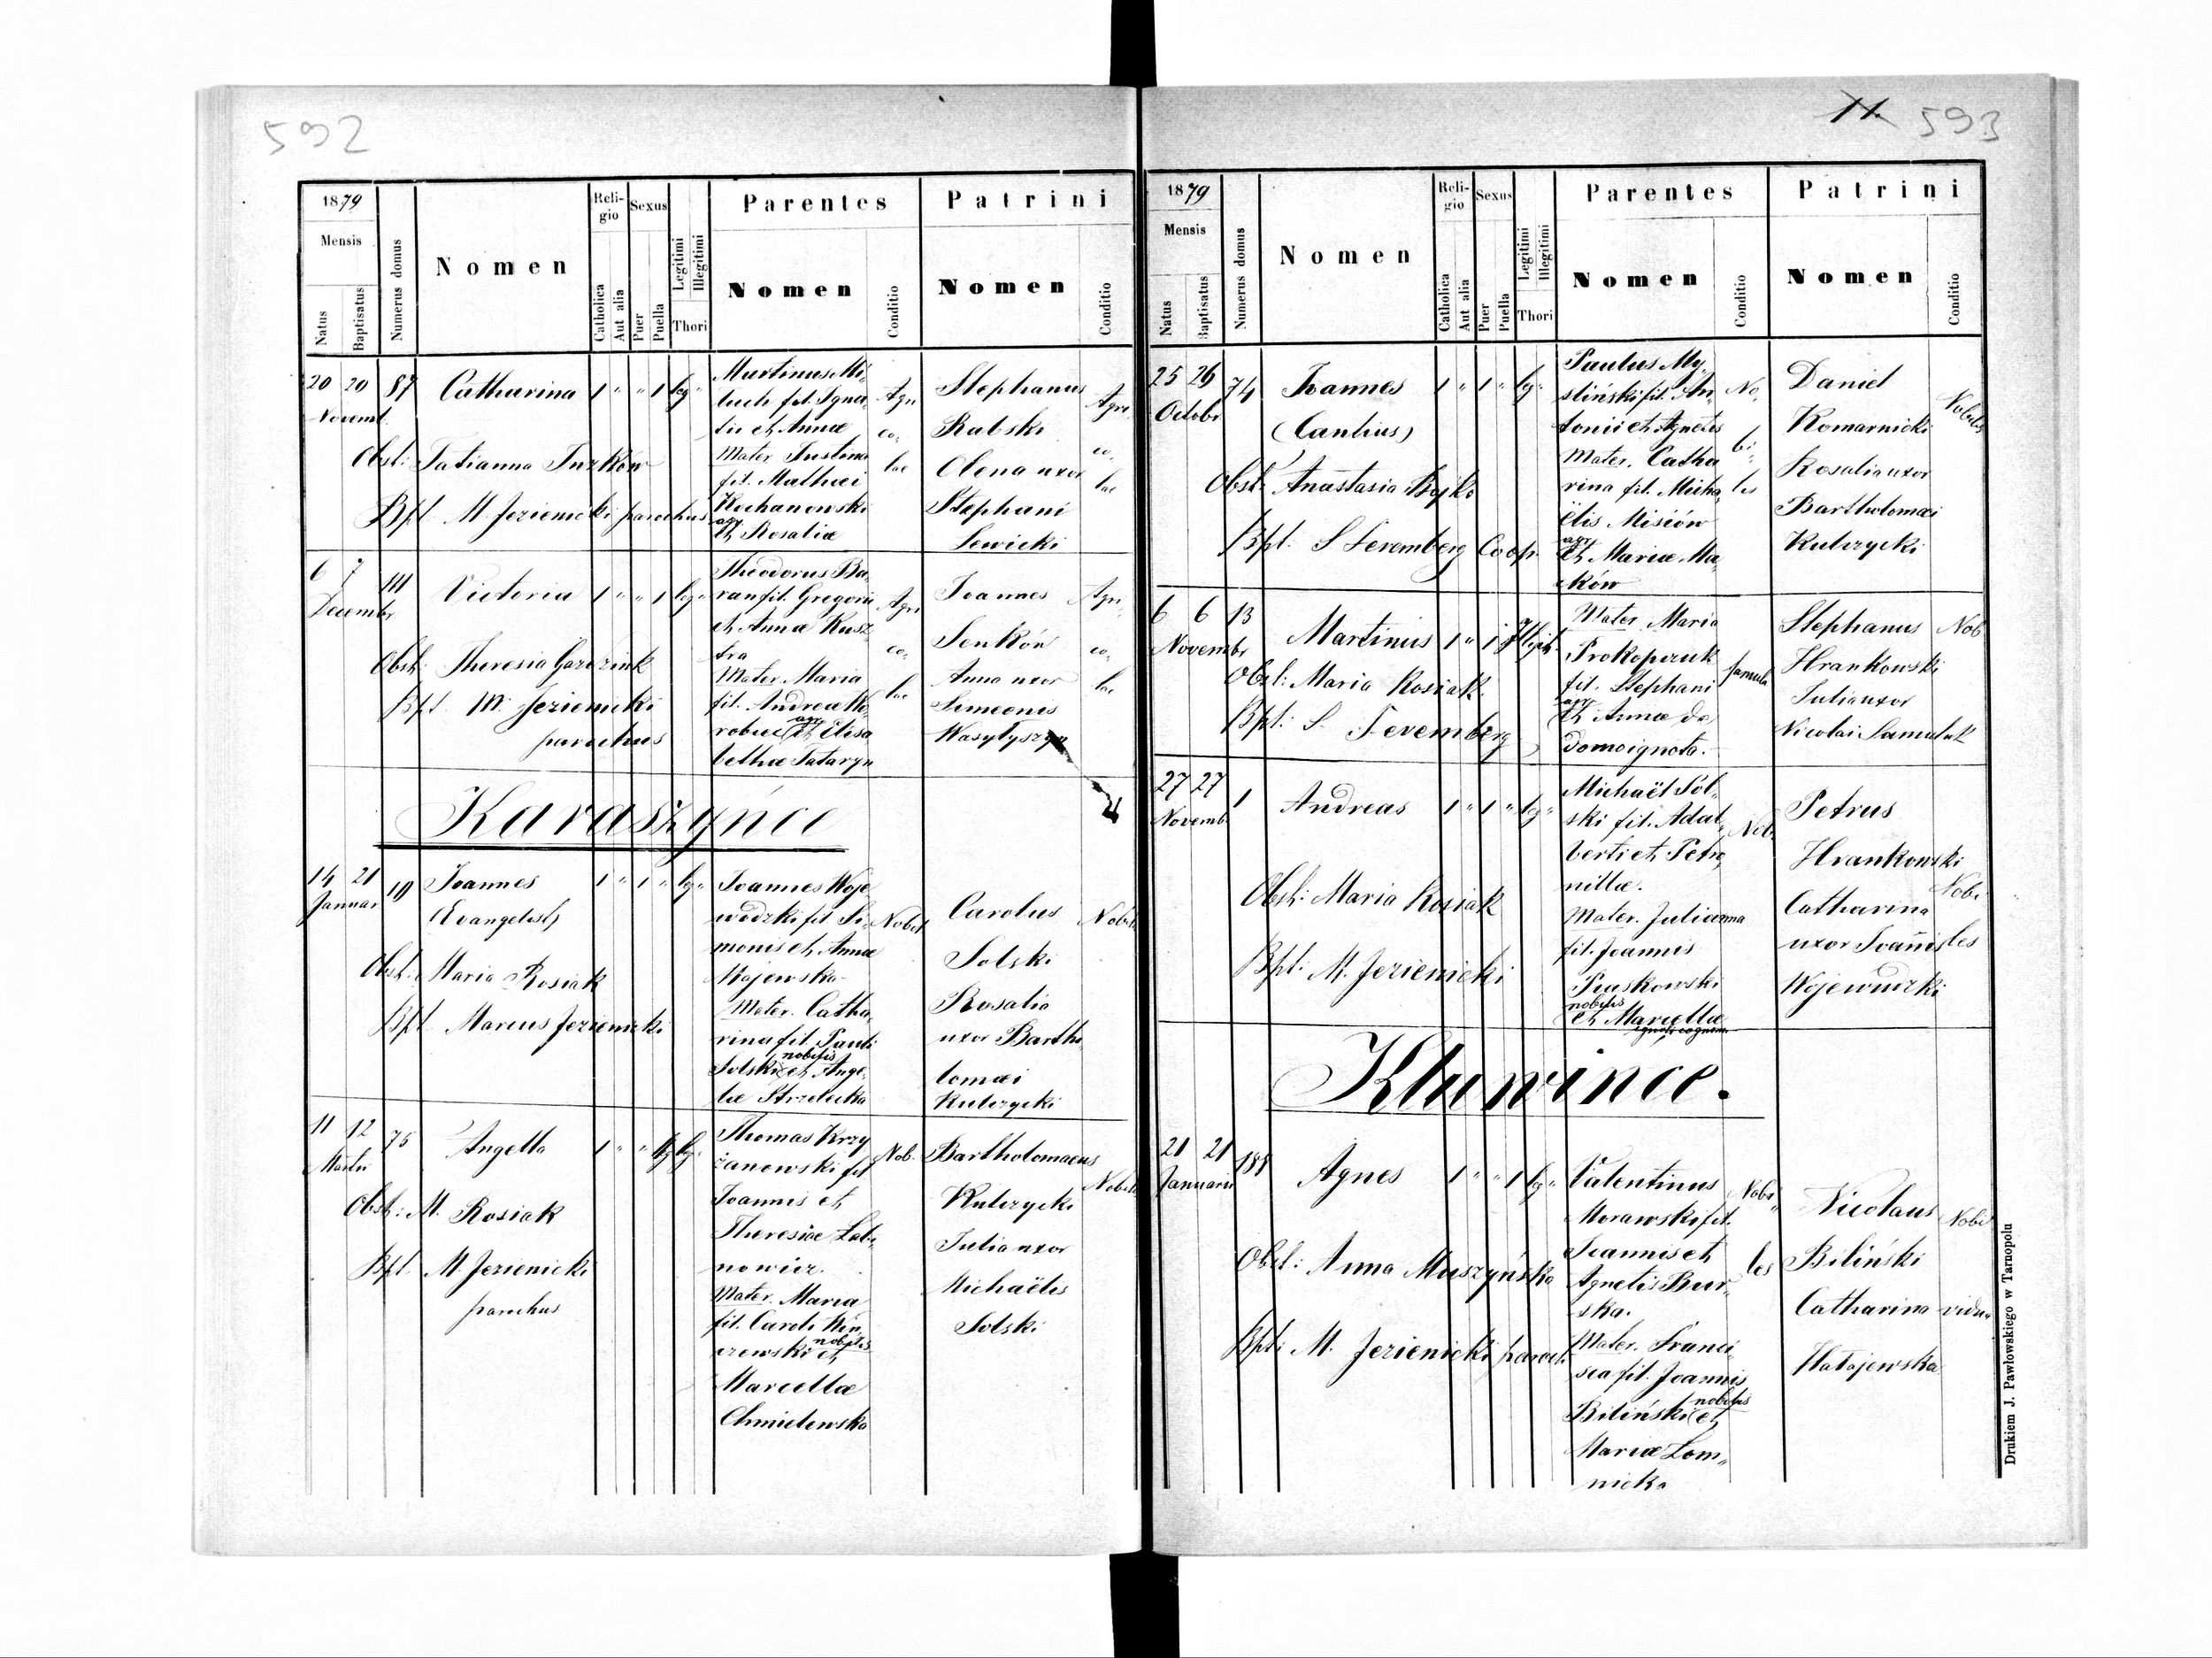 592
1879
Mensis
Natus
Baptisatus
Numerus domus
Nomen
Religio
Catholica
Aut alia
Sexus
Puer
Puella
Legitimi
Illegitimi
Thori
Parentes
Nomen
Conditio
Patrini
Nomen
Conditio
20 20 87 Catharina 1 " " 1 leg"
Novemb
Obst: Tatianna Turków
Bpt M. Jezienicki parochus
Martinus Mi-
fil. Igna-
tii et Annae
Mater Justina
fil. Mathaei
Kochanowski
agr
et Rosaliae
Agri
co-
lae
Stephanus
Rabski
Olena uxor
Stephani
Lewicki
Agri
co,
lae
6 7 111 Victoria 1 " " 1 leg"
Decembr
Obst: Theresia
Bpt M. Jezienicki
parochus
Theodorus Ba-
ran fil. Gregorii
et Annae Kusz
tra
Mater Maria
fil. Andreae Ko-
agr
et Elisa
bethae Tataryn
Agri
co,
lae
Joannes
Senków
Anna uxor
Simeonis
Wasyłyszyn
Agri,
co,
lae
Karaszyńce
14 21 10 Joannes 1 " 1 " leg"
Januar (Evangelist)
Obst. Maria Rosiak
Bpt Marcus Jezienicki
Joannes Woje
wódzki fil Si-
monis et Annae
Majewska
Mater. Catha,
rina fil. Pauli
nobilis
Solski et Ange-
lae Strzelecka
Nobil
Carolus
Solski
Rosalia
uxor Bartho
lomaei
Kulczycki
Nobil.
11 12 75 Angella 1 " "
Martii
Obst: M. Rosiak
Bpt. M Jezienicki
parochus
Thomas Krzy
żanowski fil
Joannis et
Theresiae
nowicz.
Mater. Maria
fil. Caroli Win,
nobilis
czewski et
Marcellae
Chmielewska
Nob.
Bartholomaeus
Kulczycki
Julia uxor
Michaëlis
Solski
Nobil
11. 593
1879
Mensis
Natus
Baptisatus
Numerus domus
Nomen
Religio
Catholica
Aut alia
Sexus
Puer
Puella
Legitimi
Illegitimi
Thori
Parentes
Nomen
Conditio
Patrini
Nomen
Conditio
25 26 74 Joannes 1 " 1 " leg"
Octobr (Cantius)
Obst: Anastasia Bojko
Bpt: S Feremberg Coop.
Paulus My-
śliński fil. An-
tonii et Agnetis
Mater. Catha
rina fil. Micha,
ëlis Misiów
agr
et Mariae Ma,
ków
No,
bi-
les
Daniel
Komarnicki
Rosalia uxor
Bartholomaei
Kulczycki
Nobiles
6 6 13 Martinus 1 " 1 Illegit.
Novembr
Obst: Maria Rosiak
Bpt: S. Feremberg
Mater Maria
Prokopczuk
fil. Stephani
agr
et Annae de
domo ignota.
famula
Stephanus
Hrankowski
Julia uxor
Nicolai Samuluk
Nob
27 27 1 Andreas 1 " 1 " leg"
Novemb
Obst: Maria Rosiak
Bpt: M. Jezienicki
Michaël Sol-
ski fil. Adal-
berti et Petro,
nillae.
Mater. Julianna
fil. Joannis
Piaskowski
nobilis
et Marcellae
ignoti cognom
Nob.
Petrus
Hrankowski
Catharina
uxor Joañis
Wojewódzki
Nobi
les
Kluwince.
21 21 188 Agnes 1 " " 1 leg"
Januarii
Obst: Anna Muszyńska
Bpt: M. Jezienicki paroch
Valentinus
Morawski fil.
Joannis et
Agnetis Bur-
ska.
Mater. Franci
sca fil. Joannis
nobilis
Biliński et
Mariae Lom,
nicka
Nobi"
les
Nicolaus
Biliński
Catharina vidua
Hałajewska
Nobil
Drukiem J. Pawłowskiego w Tarnopolu